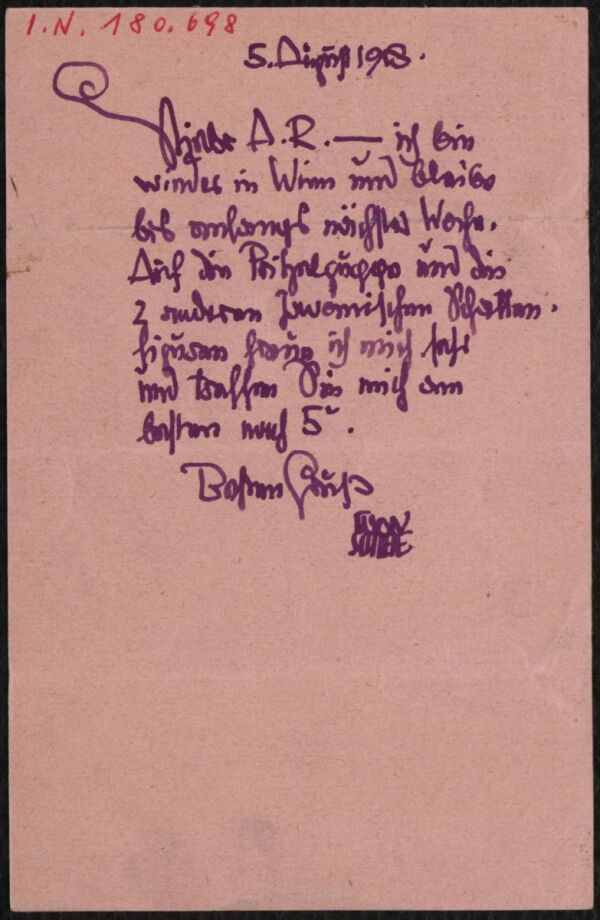 I.N. 180.698
5. August 1918.
Lieber A.R. — ich bin
wieder in Wien und bleibe
bis anfangs nächster Woche.
Auf die und die
2 anderen javanischen Schatten-
figuren freue ich mich sehr
und treffen Sie mich am
besten nach 5ʰ.
Besten Gruß
EGON
SCHIELE